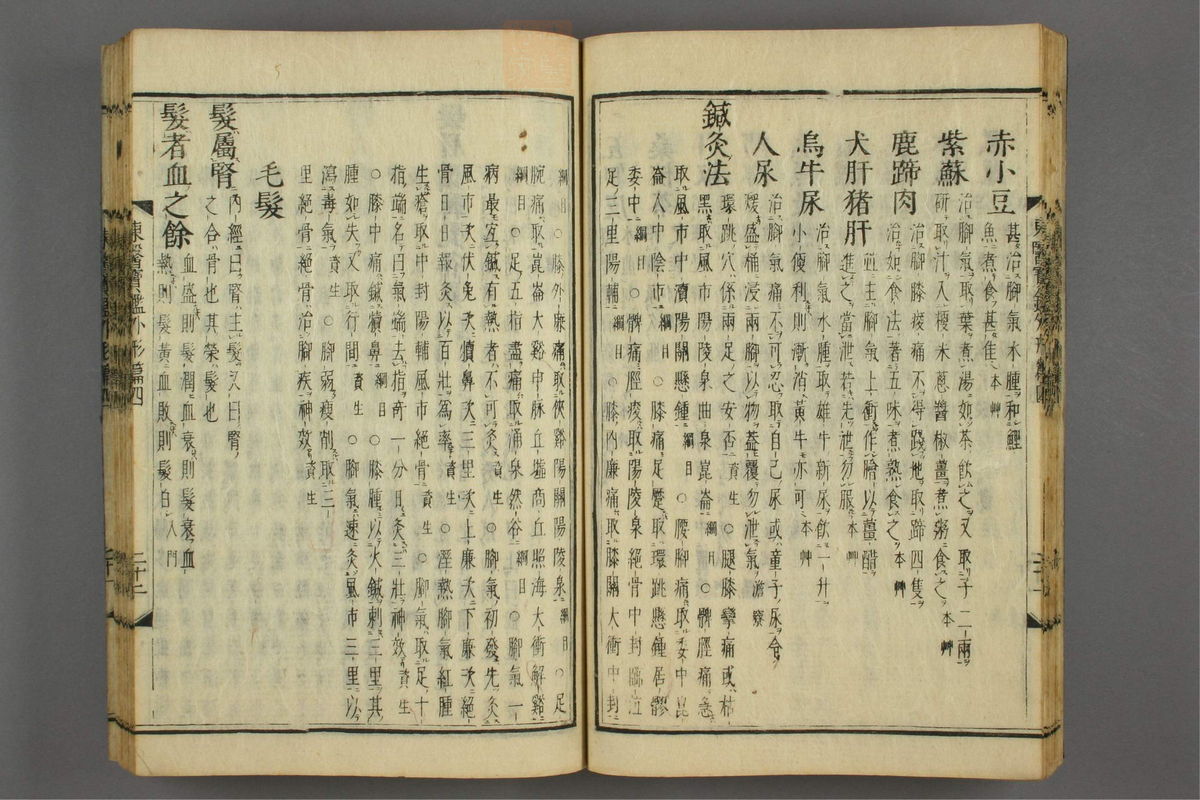 赤小豆 甚治腳氣水腫和鯉
魚煮食甚佳 本艸
紫蘇 治腳氣取葉煮湯如茶飲之又取子二兩
研取汁入粳米蔥醬椒薑煮粥食之 本艸
鹿蹄肉 治腳膝痠痛不得踐地取蹄四隻
治如食法著五味煮熟食之 本艸
犬肝猪肝 並主腳氣上衝作膾以薑醋
進之當泄若先泄勿服 本艸
烏牛尿 治腳氣水腫取雄牛新尿飲一升
小便利則漸消黃牛亦可 本艸
人尿 治腳氣痛不可忍取自己尿或童子尿令
煖盛桶浸兩腳以物蓋覆勿泄氣 澹寮
鍼灸法 環跳穴係兩足之安否 資生 ○腿膝攣痛或枯
黑取風市陽陵泉曲泉崑崙 綱目 ○髀脛痛急
取風市中瀆陽關懸鍾 綱目 ○腰腳痛取委中崑
崙人中陰市 綱目 ○膝痛足躄取環跳懸鍾居髎
委中 綱目 ○髀痛脛痠取陽陵泉絕骨中封臨泣
足三里陽輔 綱目 ○膝內廉痛取膝關大衝中封
綱目 ○膝外廉痛取俠谿陽關陽陵泉 綱目 ○足
腕痛取崑崙大谿申脉丘墟商丘照海大衝解谿
綱目 ○足五指盡痛取涌泉然谷 綱目 ○腳氣一
病最宜鍼有熱者不可灸 資生 ○腳氣初發先灸
風市次伏兔次犢鼻次三里次上廉次下廉次絕
骨日日報灸以百壯為率 資生 ○溼熱腳氣紅腫
生瘡取中封陽輔風市絕骨 資生 ○腳氣取足十
指端名曰氣端去指奇一分日灸三壯神效 資生
○膝中痛鍼犢鼻 綱目 ○膝腫以火鍼刺三里其
腫如失又取行間 資生 ○腳氣速灸風市三里以
瀉毒氣 資生 ○腳弱瘦削取三
里絕骨絕骨治腳疾神效 資生
毛髮
髮屬腎 內經曰腎主髮又曰腎
之合骨也其榮髮也
髮者血之餘 血盛則髮潤血衰則髮衰血
熱則髮黃血敗則髮白 入門
東醫寶鑑外形篇四
二十二